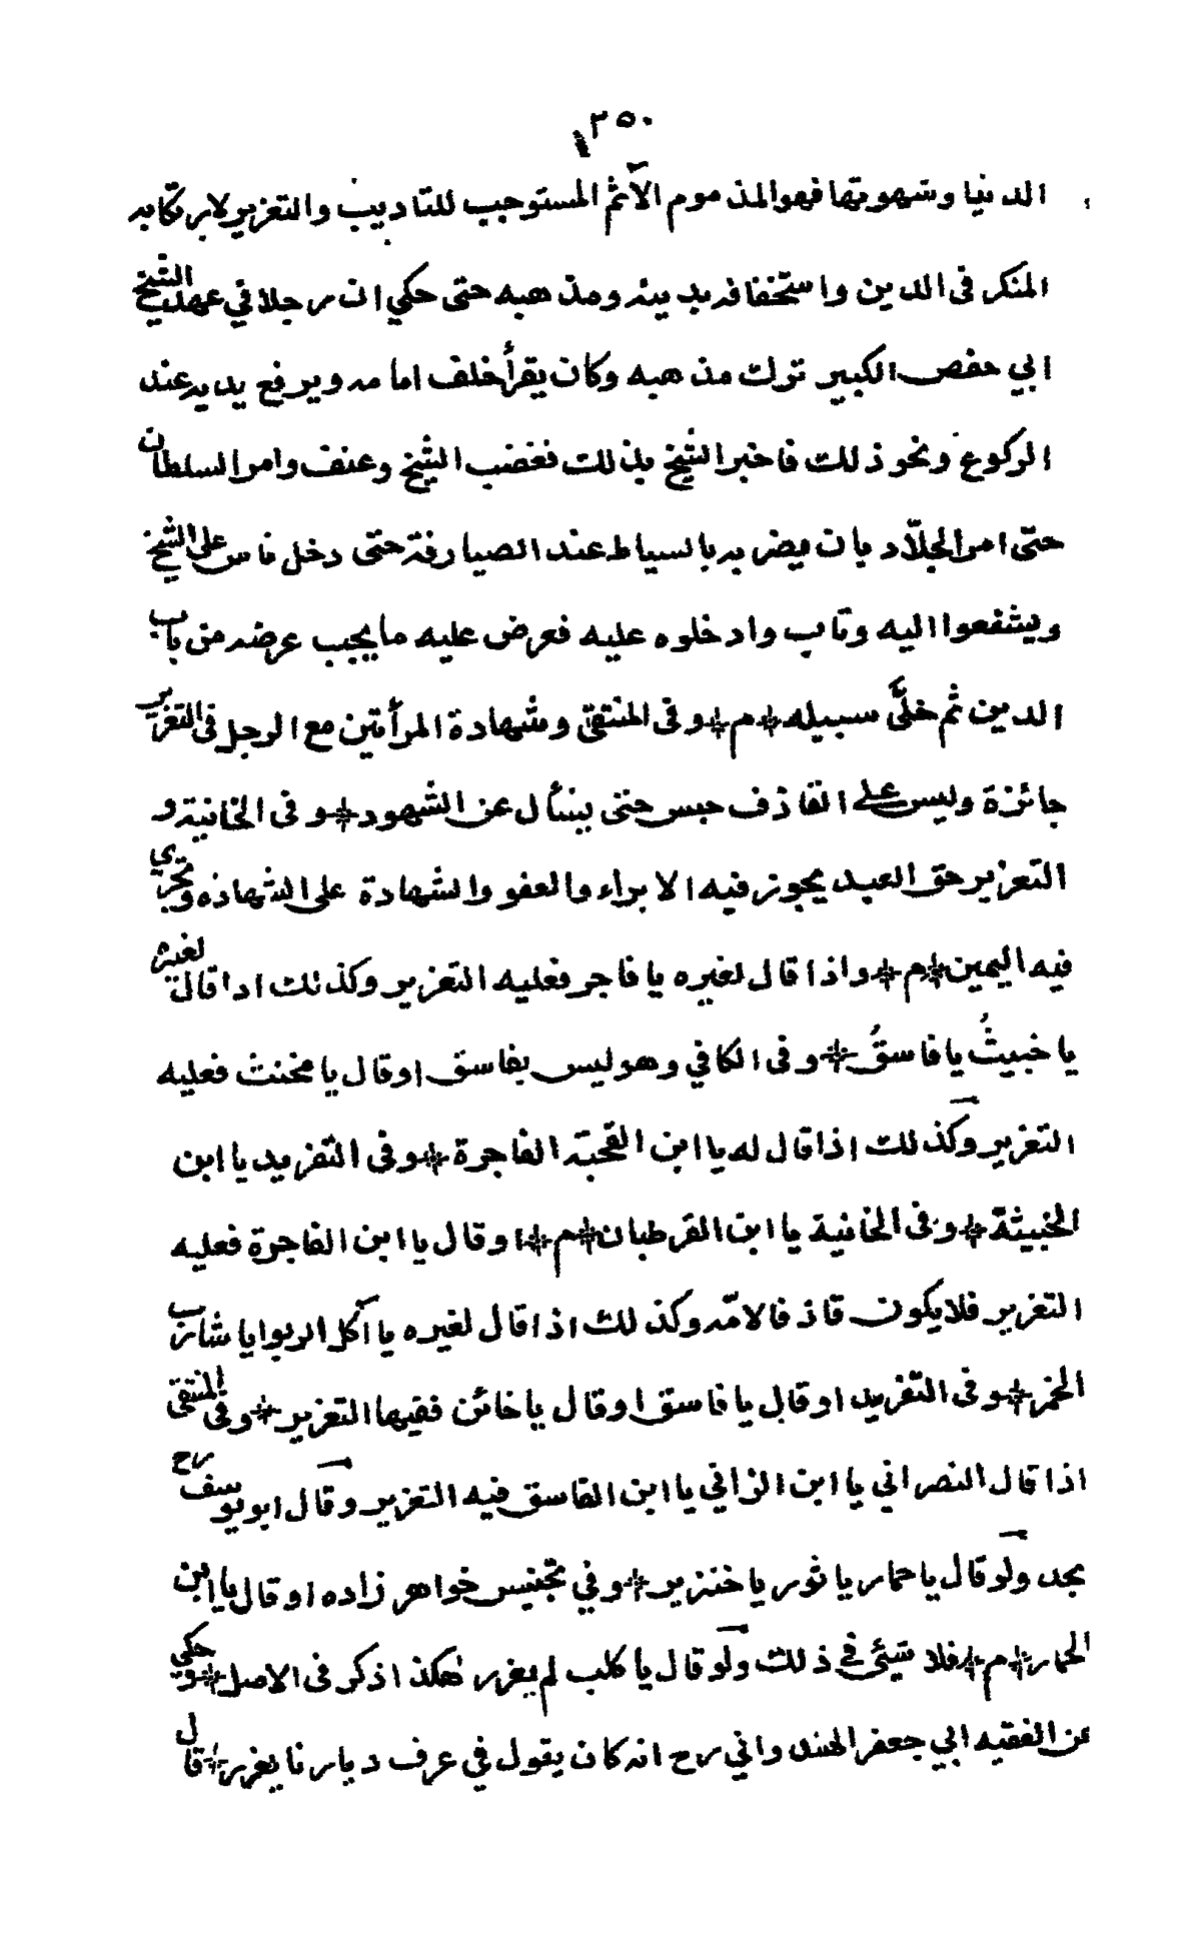 ٣٥٠
الدنيا وشهوتها فهو المذموم الآثم المستوجب للتاديب والتعزير لارتكابه
المنكر فى الدين واستخفافه بدينه ومذهبه حتى حكي ان رجلا في عهد الشيخ
ابي حفص الكبير ترك مذهبه وكان يقرأ خلف امامه ويرفع يديه عند
الركوع ونحو ذلك فاخبر الشيخ بذلك فغضب الشيخ وعنف وامر السلطان
حتّى امر الجلّاد بان يضربه بالسياط عند الصيارفة حتى دخل ناس على الشيخ
ويشفعوا اليه وتاب وادخلوه عليه فعرض عليه ما يجب عرضه من باب
الدين ثم خلّى سبيله * م * وفى المنتقى وشهادة المرأتين مع الرجل فى التعزير
جائزة وليس على القاذف حبس حتى يسأل عن الشهود * وفى الخانية و
التعزير حق العبد يجوز فيه الابراء والعفو والشهادة على الشهاده وتجري
فيه اليمين * م * واذا قال لغيره يا فاجر فعليه التعزير وكذلك اذا قال لغيره
يا خبيثُ يا فاسقُ * وفى الكافي وهو ليس بفاسق او قال يا مخنث فعليه
التعزير وكذلك اذا قال له يا ابن القحبة الفاجرة * وفى التفريد يا ابن
الخبيثة * وفى الخانية يا ابن القرطبان * م * او قال يا ابن الفاجرة فعليه
التعزير فلا يكون قاذفا لامّه وكذلك اذا قال لغيره يا آكل الربوا يا شارب
الخمر * وفى التفريد او قال يا فاسق او قال يا خائن ففيها التعزير * وفى المنتقى
اذا قال النصراني يا ابن الزاني يا ابن الفاسق فيه التعزير وقال ابو يوسف رح
يحد ولو قال يا حمار يا ثور يا خنزير * وفي تجنيس خواهر زاده او قال يا ابن
الحمار * م * فلا شيئى في ذلك ولو قال يا كلب لم يعزر هكذا ذكر فى الاصل * وحكي
عن الفقيه ابي جعفر الهندواني رح انه كان يقول في عرف ديارنا يعزر * قال